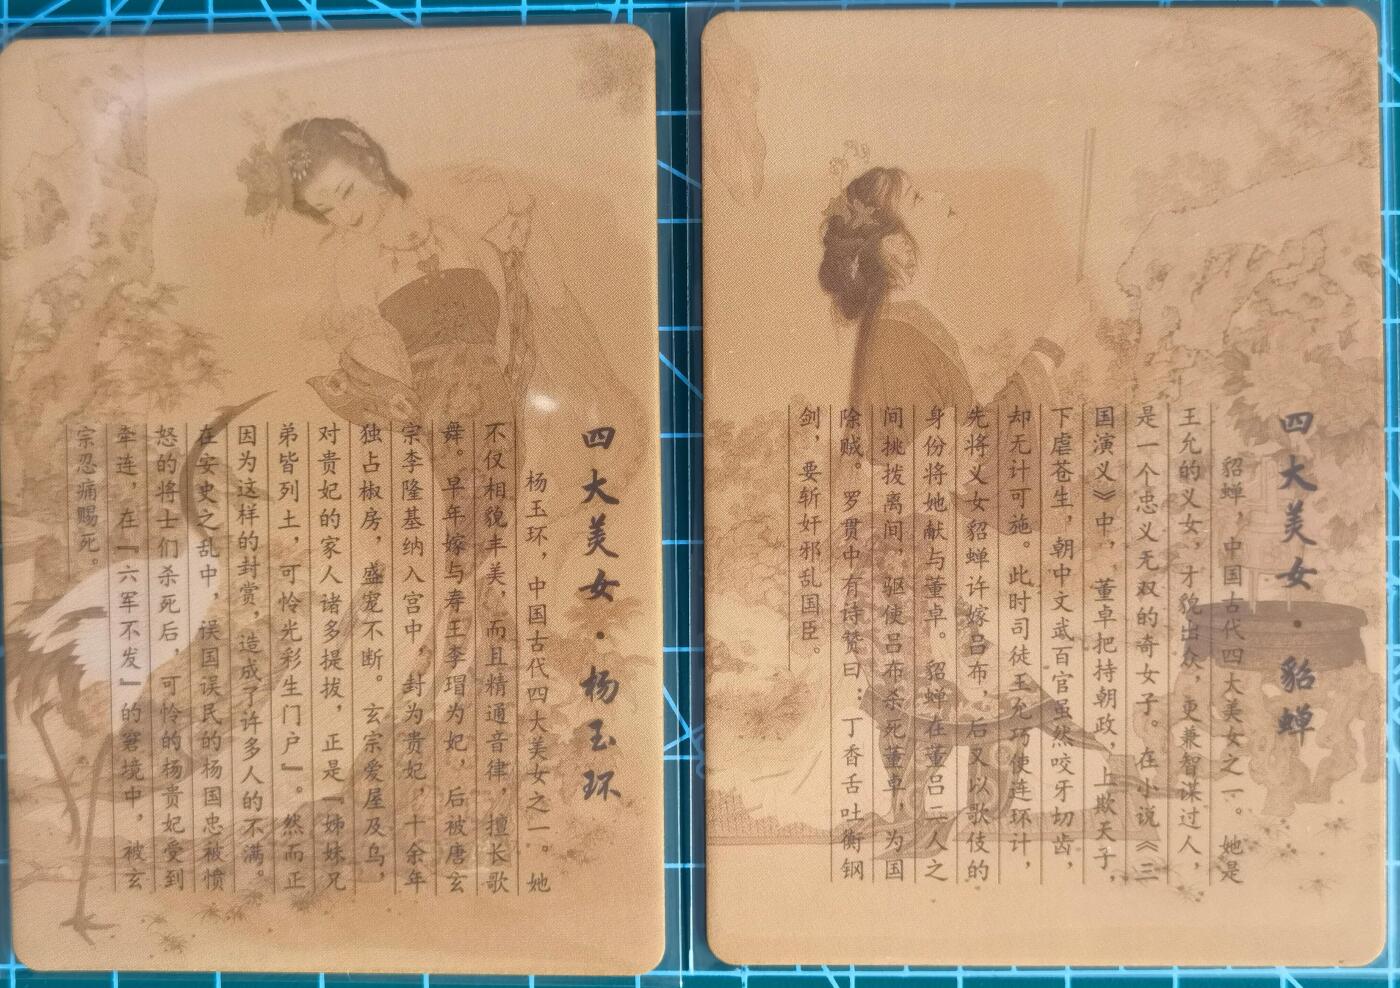 四大美女·杨玉环
杨玉环，中国古代四大美女之一。她
不仅相貌丰美，而且精通音律，擅长歌
舞。早年嫁与寿王李瑁为妃，后被唐玄
宗李隆基纳入宫中，封为贵妃，十余年
独占椒房，盛宠不断。玄宗爱屋及乌，
对贵妃的家人诸多提拔，正是『姊妹兄
弟皆列土，可怜光彩生门户』。然而正
因为这样的封赏，造成了许多人的不满。
在安史之乱中，误国误民的杨国忠被愤
怒的将士们杀死后，可怜的杨贵妃受到
牵连，在『六军不发』的窘境中，被玄
宗忍痛赐死。
四大美女·貂蝉
貂蝉，中国古代四大美女之一。她是
王允的义女，才貌出众，更兼智谋过人，
是一个忠义无双的奇女子。在小说《三
国演义》中，董卓把持朝政，上欺天子，
下虐苍生，朝中文武百官虽然咬牙切齿，
却无计可施。此时司徒王允巧使连环计，
先将义女貂蝉许嫁吕布，后又以歌伎的
身份将她献与董卓。貂蝉在董吕二人之
间挑拨离间，驱使吕布杀死董卓，为国
除贼。罗贯中有诗赞曰：丁香舌吐衡钢
剑，要斩奸邪乱国臣。